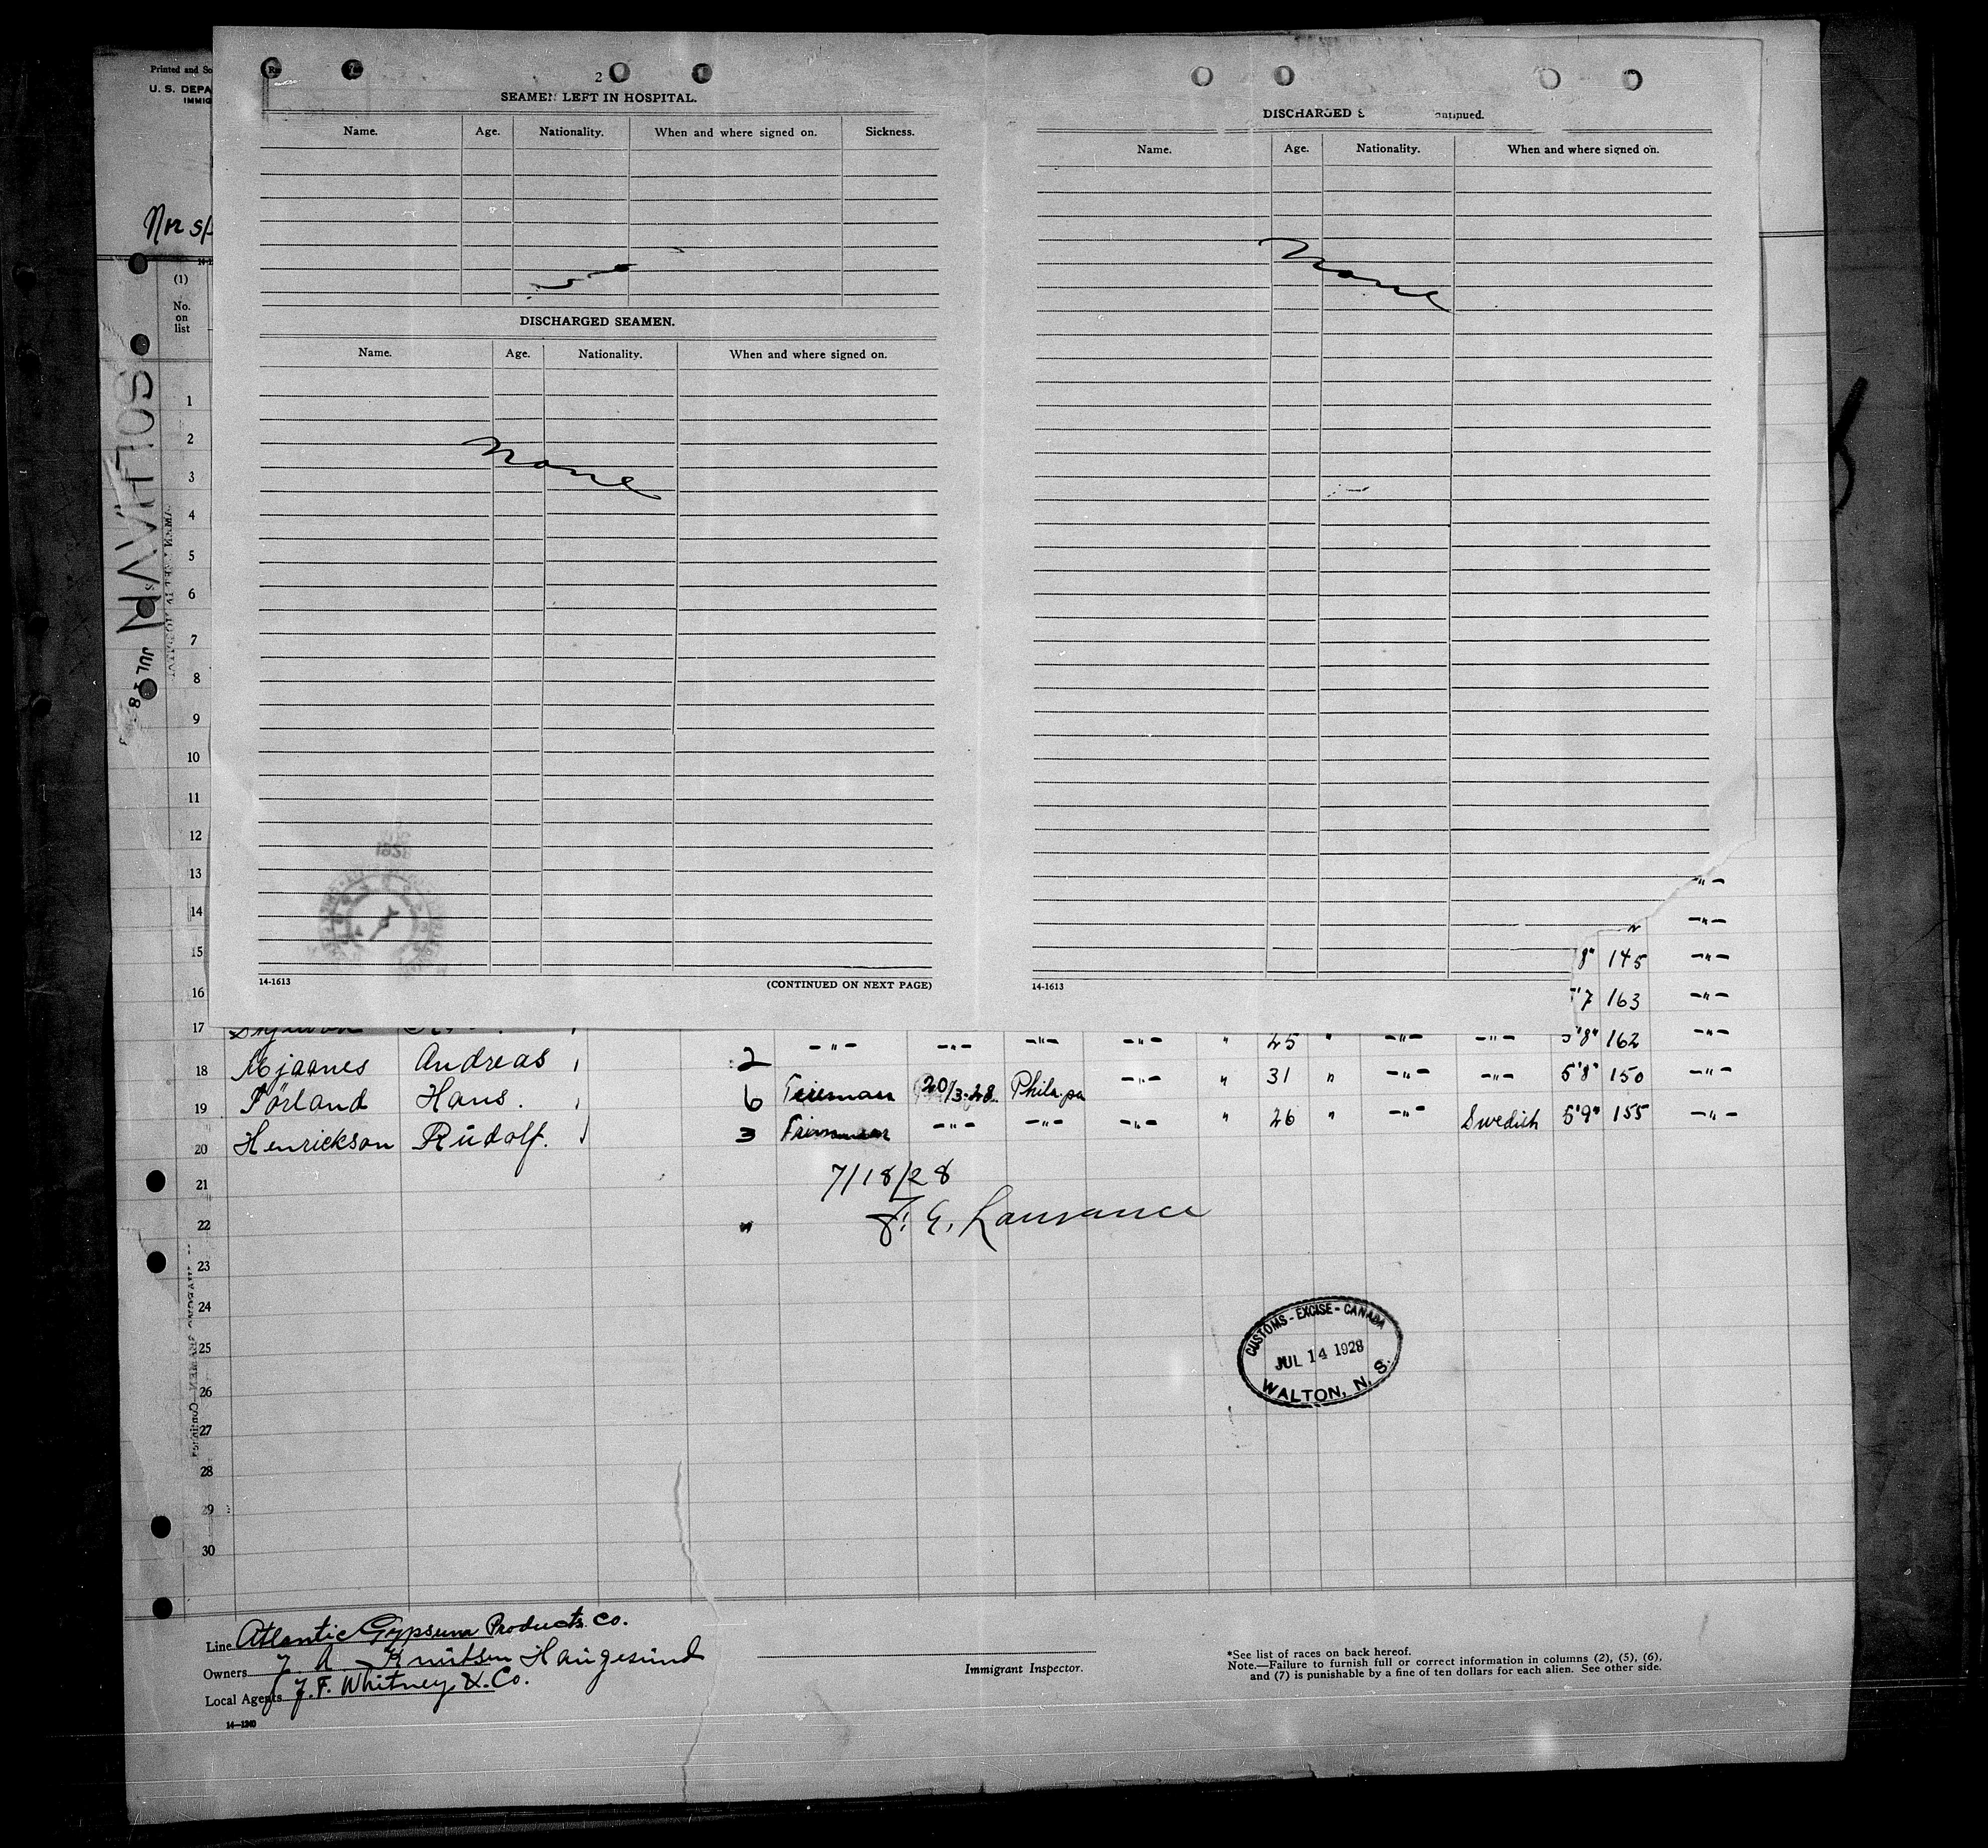 Printed and So
U. S. DEPA
IMMIG
2
SEAMEN LEFT IN HOSPITAL.
Name. Age. Nationality. When and where signed on. Sickness.
DISCHARGED SEAMEN.
Name. Age. Nationality. When and where signed on.
None
14-1613 (CONTINUED ON NEXT PAGE)
DISCHARGED S ontinued.
Name. Age. Nationality. When and where signed on.
None
14-1613
(1)
No.
on
list
1
2
3
4
5
6
7
8
9
10
11
12
13 -"-
14 -"-
15 8" 145 -"-
16 7 163 -"-
17 -"- -"- -"- -"- " 25 " -"- -"- 5'8" 162 -"-
18 Mjaanes Andreas 2 -"- " 31 " -"- -"- 5'8" 150 -"-
19 Förland Hans. 6 20/3-28 Phila. pa -"- " 26 " -"- Swedish 5'9" 155 -"-
20 Henrickson Rudolf. 3 -"- -"-
21 7/18/28
22
23
24
25
26
27
28
29
30
CUSTOMS - EXCISE - CANADA
JUL 14 1928
WALTON, N. S.
Line Atlantic Gypsum Products Co.
Owners Knutsen Haugesund
Local Agents J. F. Whitney & Co.
14—1240
Immigrant Inspector.
*See list of races on back hereof.
Note.—Failure to furnish full or correct information in columns (2), (5), (6),
and (7) is punishable by a fine of ten dollars for each alien. See other side.